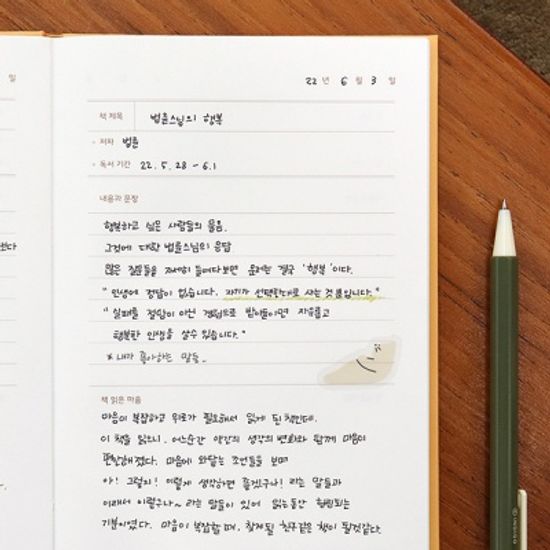 일
22 년 6 월 3 일
책 제목 법륜스님의 행복
저자 법륜
독서 기간 22. 5. 28 - 6. 1
내용과 문장
행복하고 싶은 사람들의 물음.
그것에 대한 법륜스님의 응답
많은 질문들을 자세히 들여다보면 문제는 결국 '행복'이다.
" 인생에 정답이 없습니다. 자기가 선택한대로 사는 것 뿐입니다."
" 실패를 절망이 아닌 경험으로 받아들이면 자유롭고
행복한 인생을 살 수 있습니다."
* 내가 좋아하는 말들.
책 읽은 마음
마음이 복잡하고 위로가 필요해서 읽게 된 책인데.
이 책을 읽으니, 어느순간 약간의 생각의 변화와 함께 마음이
편안해졌다. 마음에 와닿는 조언들을 보며
아! 그렇지! 이렇게 생각하면 좋겠구나! 라는 말들과
이래서 이렇구나~ 라는 말들이 있어 읽는동안 힐링되는
기분이였다. 마음이 복잡할 때, 찾게될 친구같은 책이 될것같다.